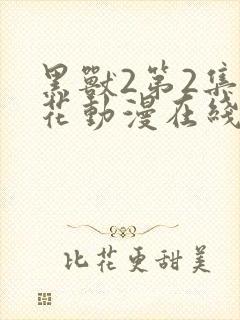 黑獸2第2集
花動漫在綫
比花更甜美